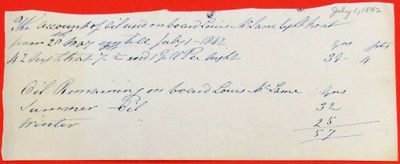 July 1, 1842
The account of Oil used on board Louis McLane light boat
from 20th May up till July 1 1842
42 nights at 7 and 1 Gill Per Night 38
Oil Remaining on board Louis McLane Gns
Summer Oil 32
Winter 25
57